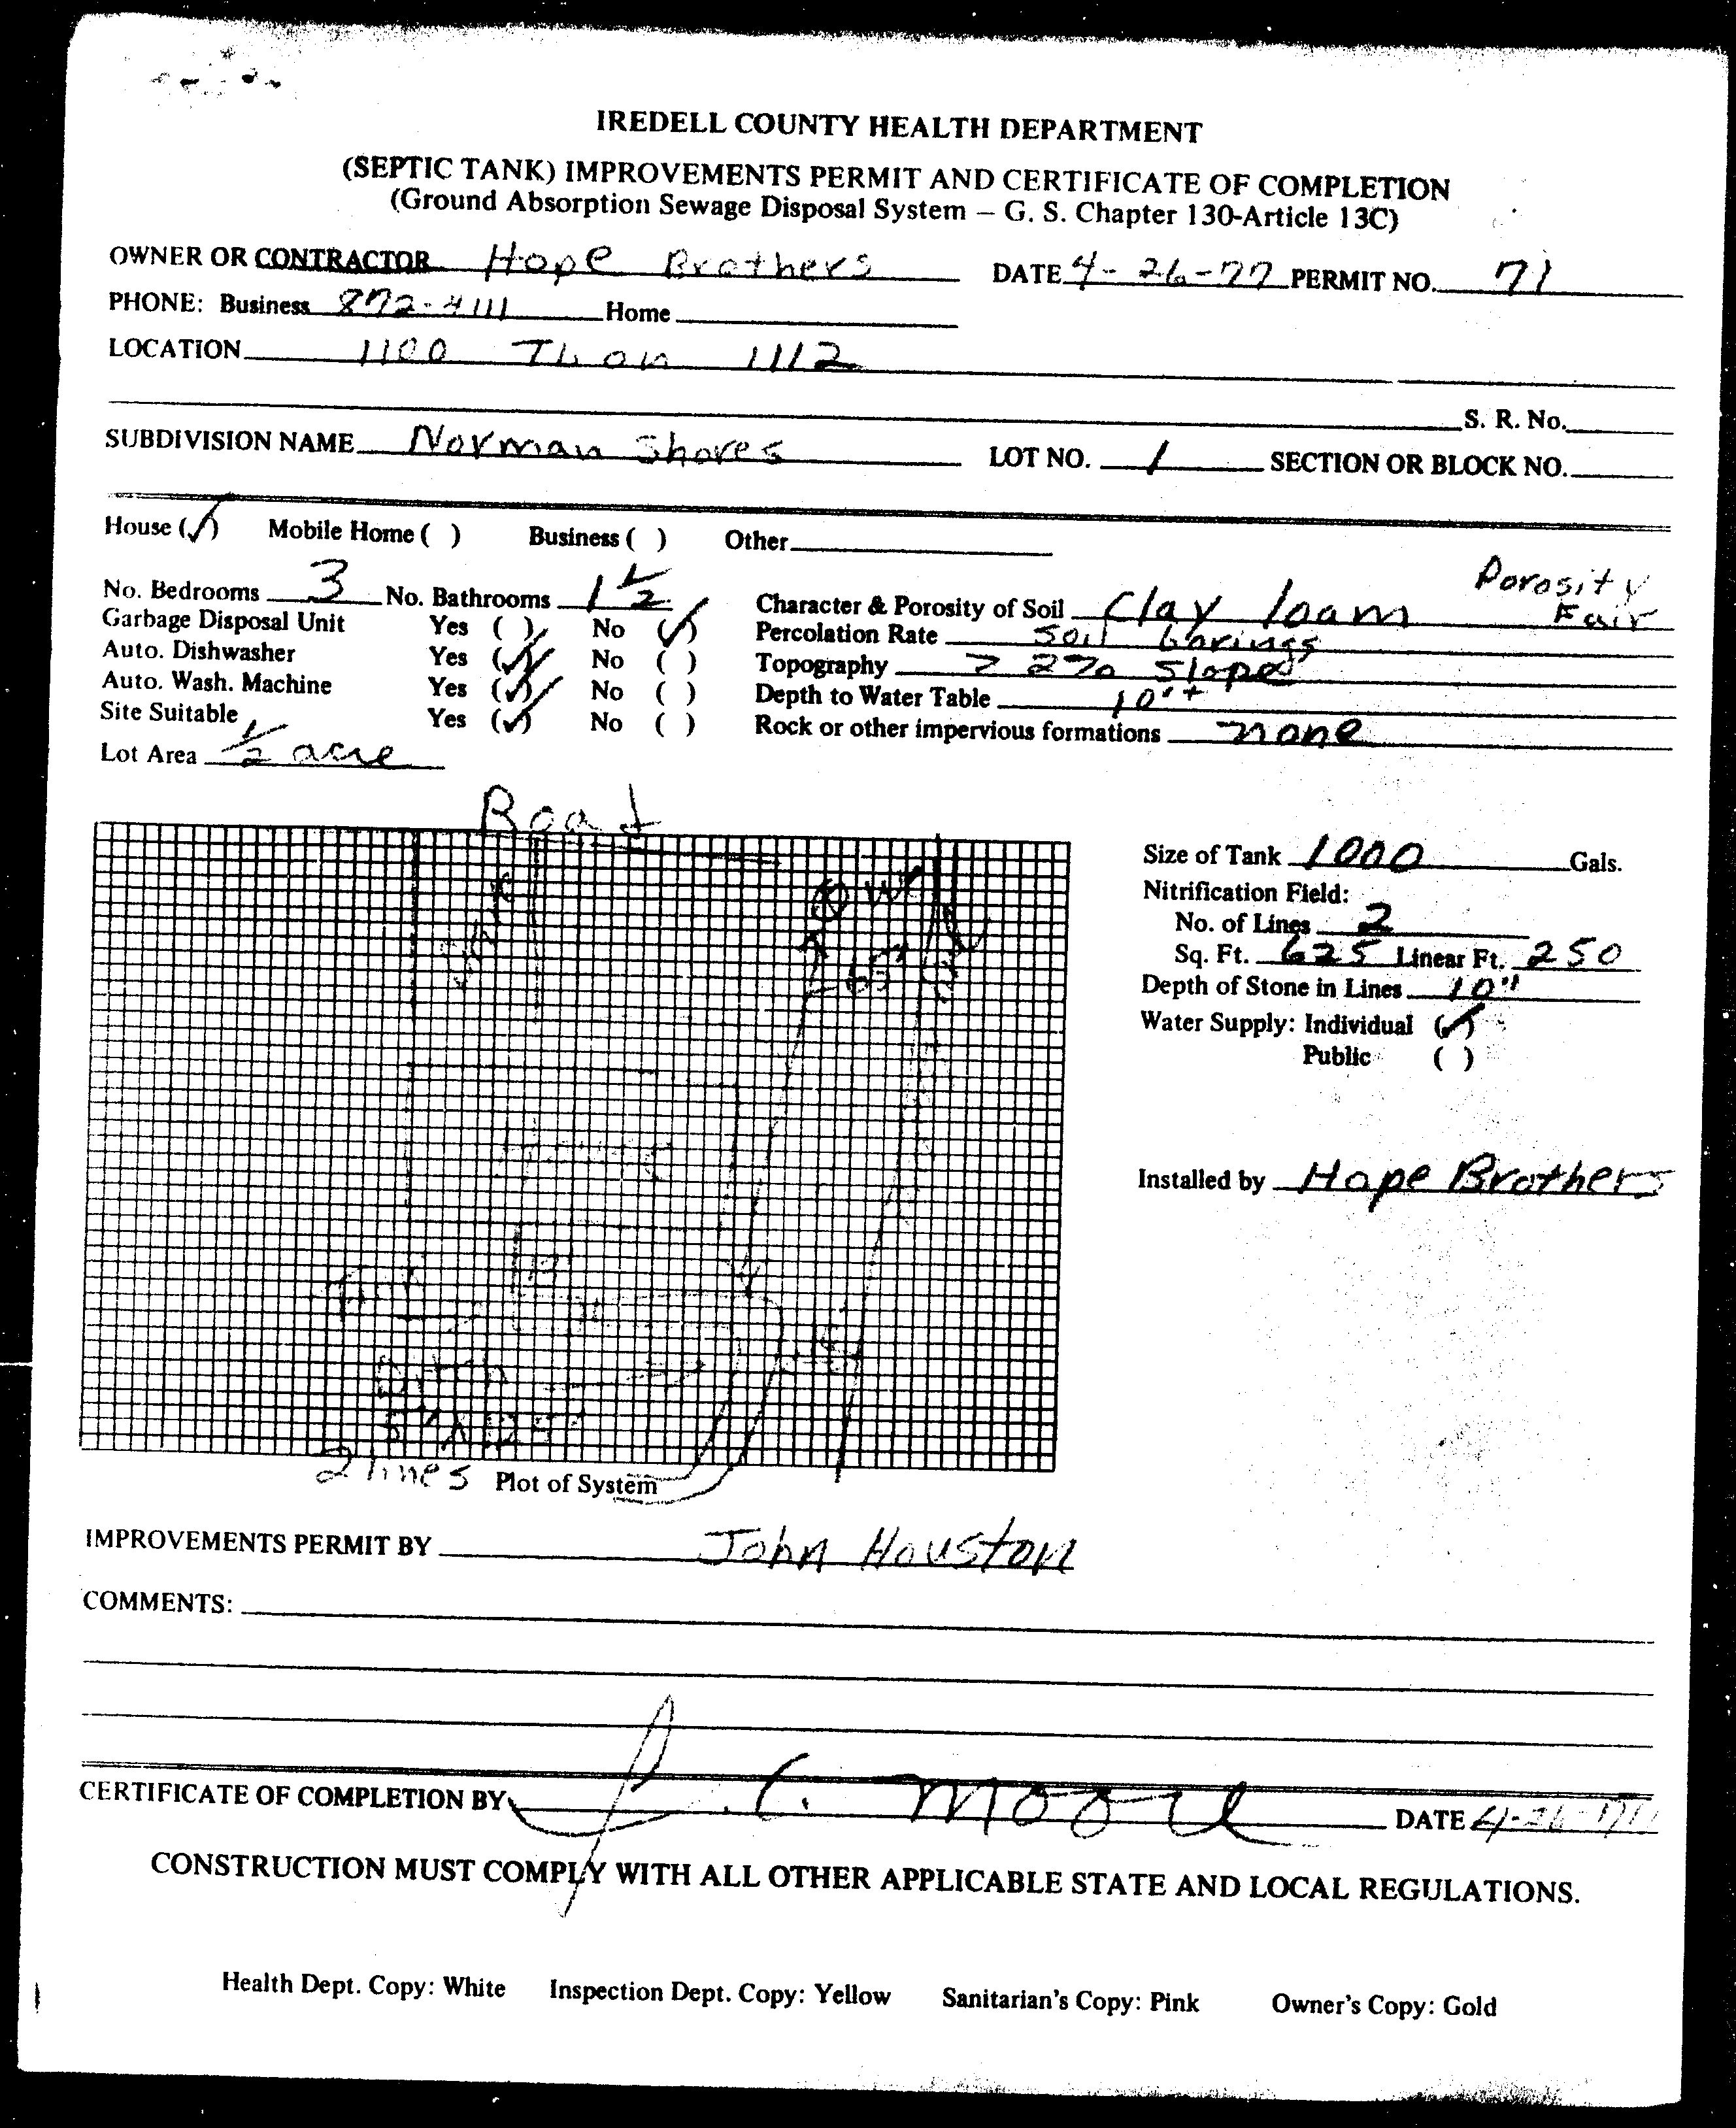 IREDELL COUNTY HEALTH DEPARTMENT
(SEPTIC TANK) IMPROVEMENTS PERMIT AND CERTIFICATE OF COMPLETION
(Ground Absorption Sewage Disposal System – G. S. Chapter 130-Article 13C)
OWNER OR CONTRACTOR Hope Brothers DATE 4-26-77 PERMIT NO. 71
PHONE: Business 872-4111 Home
LOCATION 1100 Th on 1112
S. R. No.
SUBDIVISION NAME Norman Shores LOT NO. 1 SECTION OR BLOCK NO.
House (✓) Mobile Home ( ) Business ( ) Other
No. Bedrooms 3 No. Bathrooms 1 1/2
Garbage Disposal Unit Yes ( ) No (✓)
Auto. Dishwasher Yes (✓) No ( )
Auto. Wash. Machine Yes (✓) No ( )
Site Suitable Yes (✓) No ( )
Lot Area 1/2 acre
Character & Porosity of Soil Clay loam Porosity Fair
Percolation Rate Soil borings
Topography > 2% Slope
Depth to Water Table 10'+
Rock or other impervious formations none
Road
Size of Tank 1000 Gals.
Nitrification Field:
No. of Lines 2
Sq. Ft. 625 Linear Ft. 250
Depth of Stone in Lines 10"
Water Supply: Individual (✓)
Public ( )
Installed by Hope Brothers
2 lines Plot of System
IMPROVEMENTS PERMIT BY John Houston
COMMENTS:
CERTIFICATE OF COMPLETION BY J. C. Moore DATE 4-26-77
CONSTRUCTION MUST COMPLY WITH ALL OTHER APPLICABLE STATE AND LOCAL REGULATIONS.
Health Dept. Copy: White Inspection Dept. Copy: Yellow Sanitarian's Copy: Pink Owner's Copy: Gold